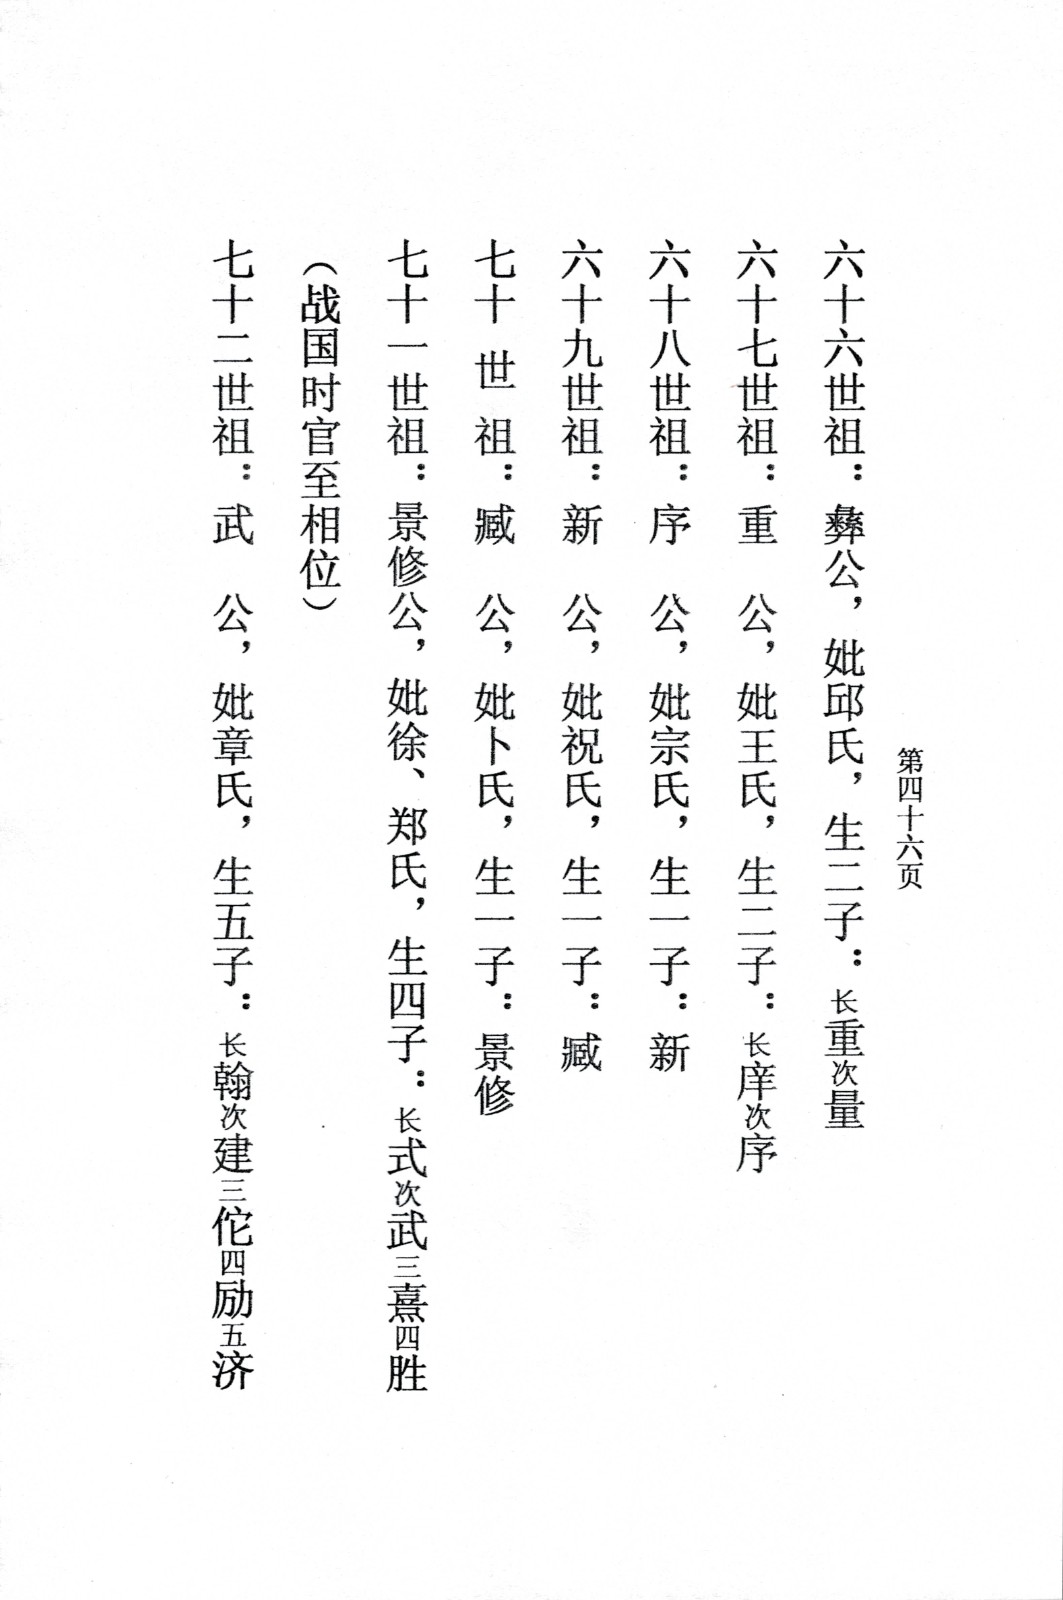 第四十六页
六十六世祖：彝公，妣邱氏，生二子：长重次量
六十七世祖：重公，妣王氏，生二子：长庠次序
六十八世祖：序公，妣宗氏，生一子：新
六十九世祖：新公，妣祝氏，生一子：臧
七十世祖：臧公，妣卜氏，生一子：景修
七十一世祖：景修公，妣徐、郑氏，生四子：长式次武三熹四胜
（战国时官至相位）
七十二世祖：武公，妣章氏，生五子：长翰次建三佗四励五济